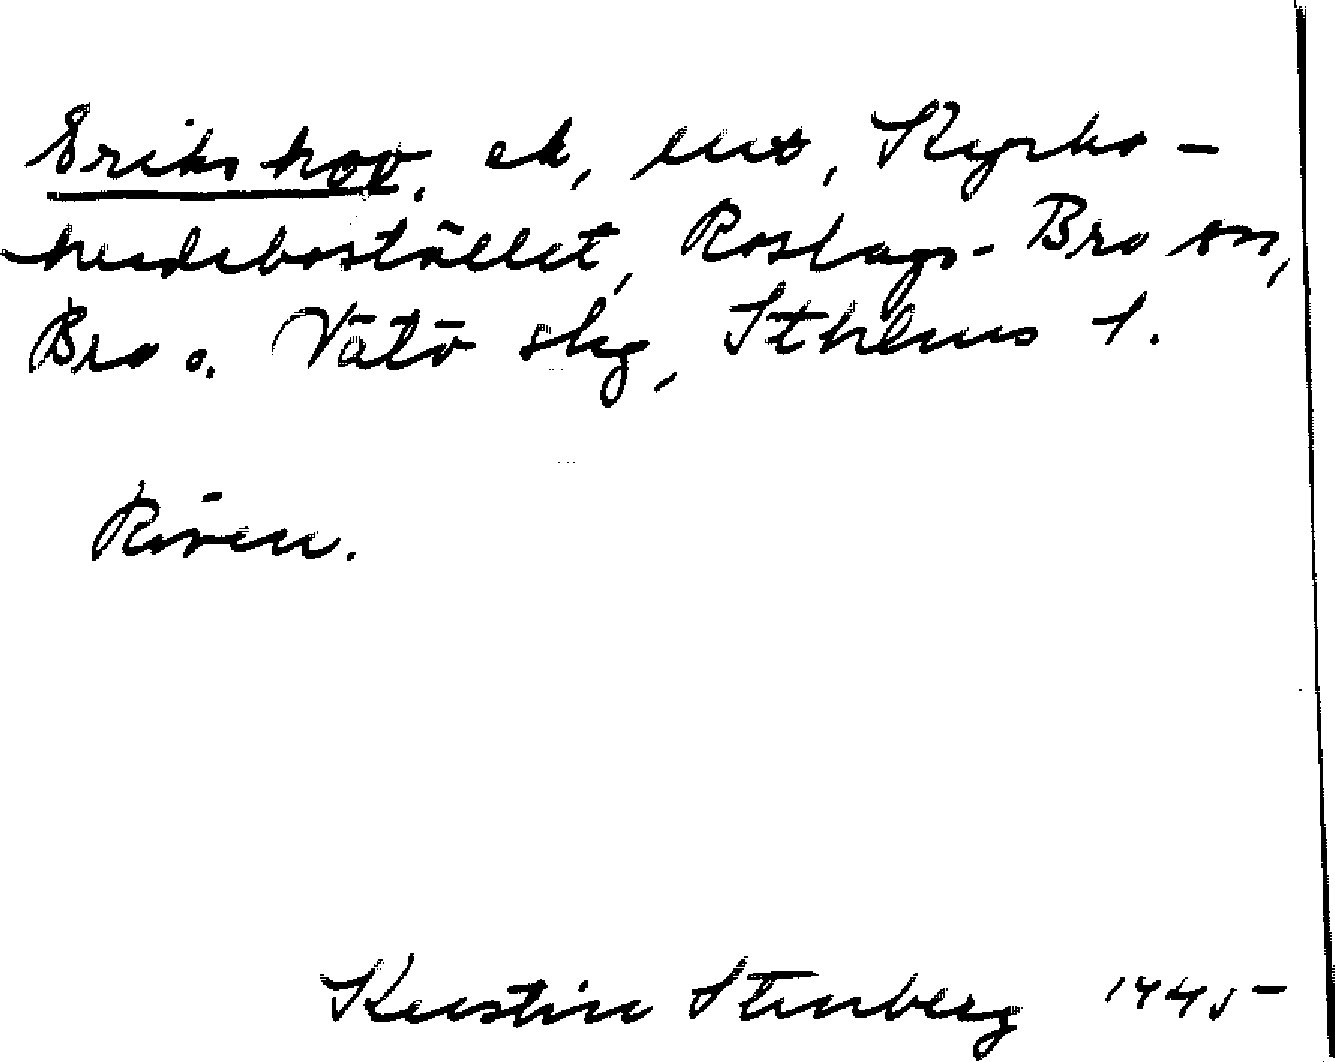 Erikshov, ek, lut, Kyrko-
herdebostället, Roslags-Bro sn,
Bro o. Vätö skg, Sthlms l.
Riven.
Kerstin Stenberg 1945